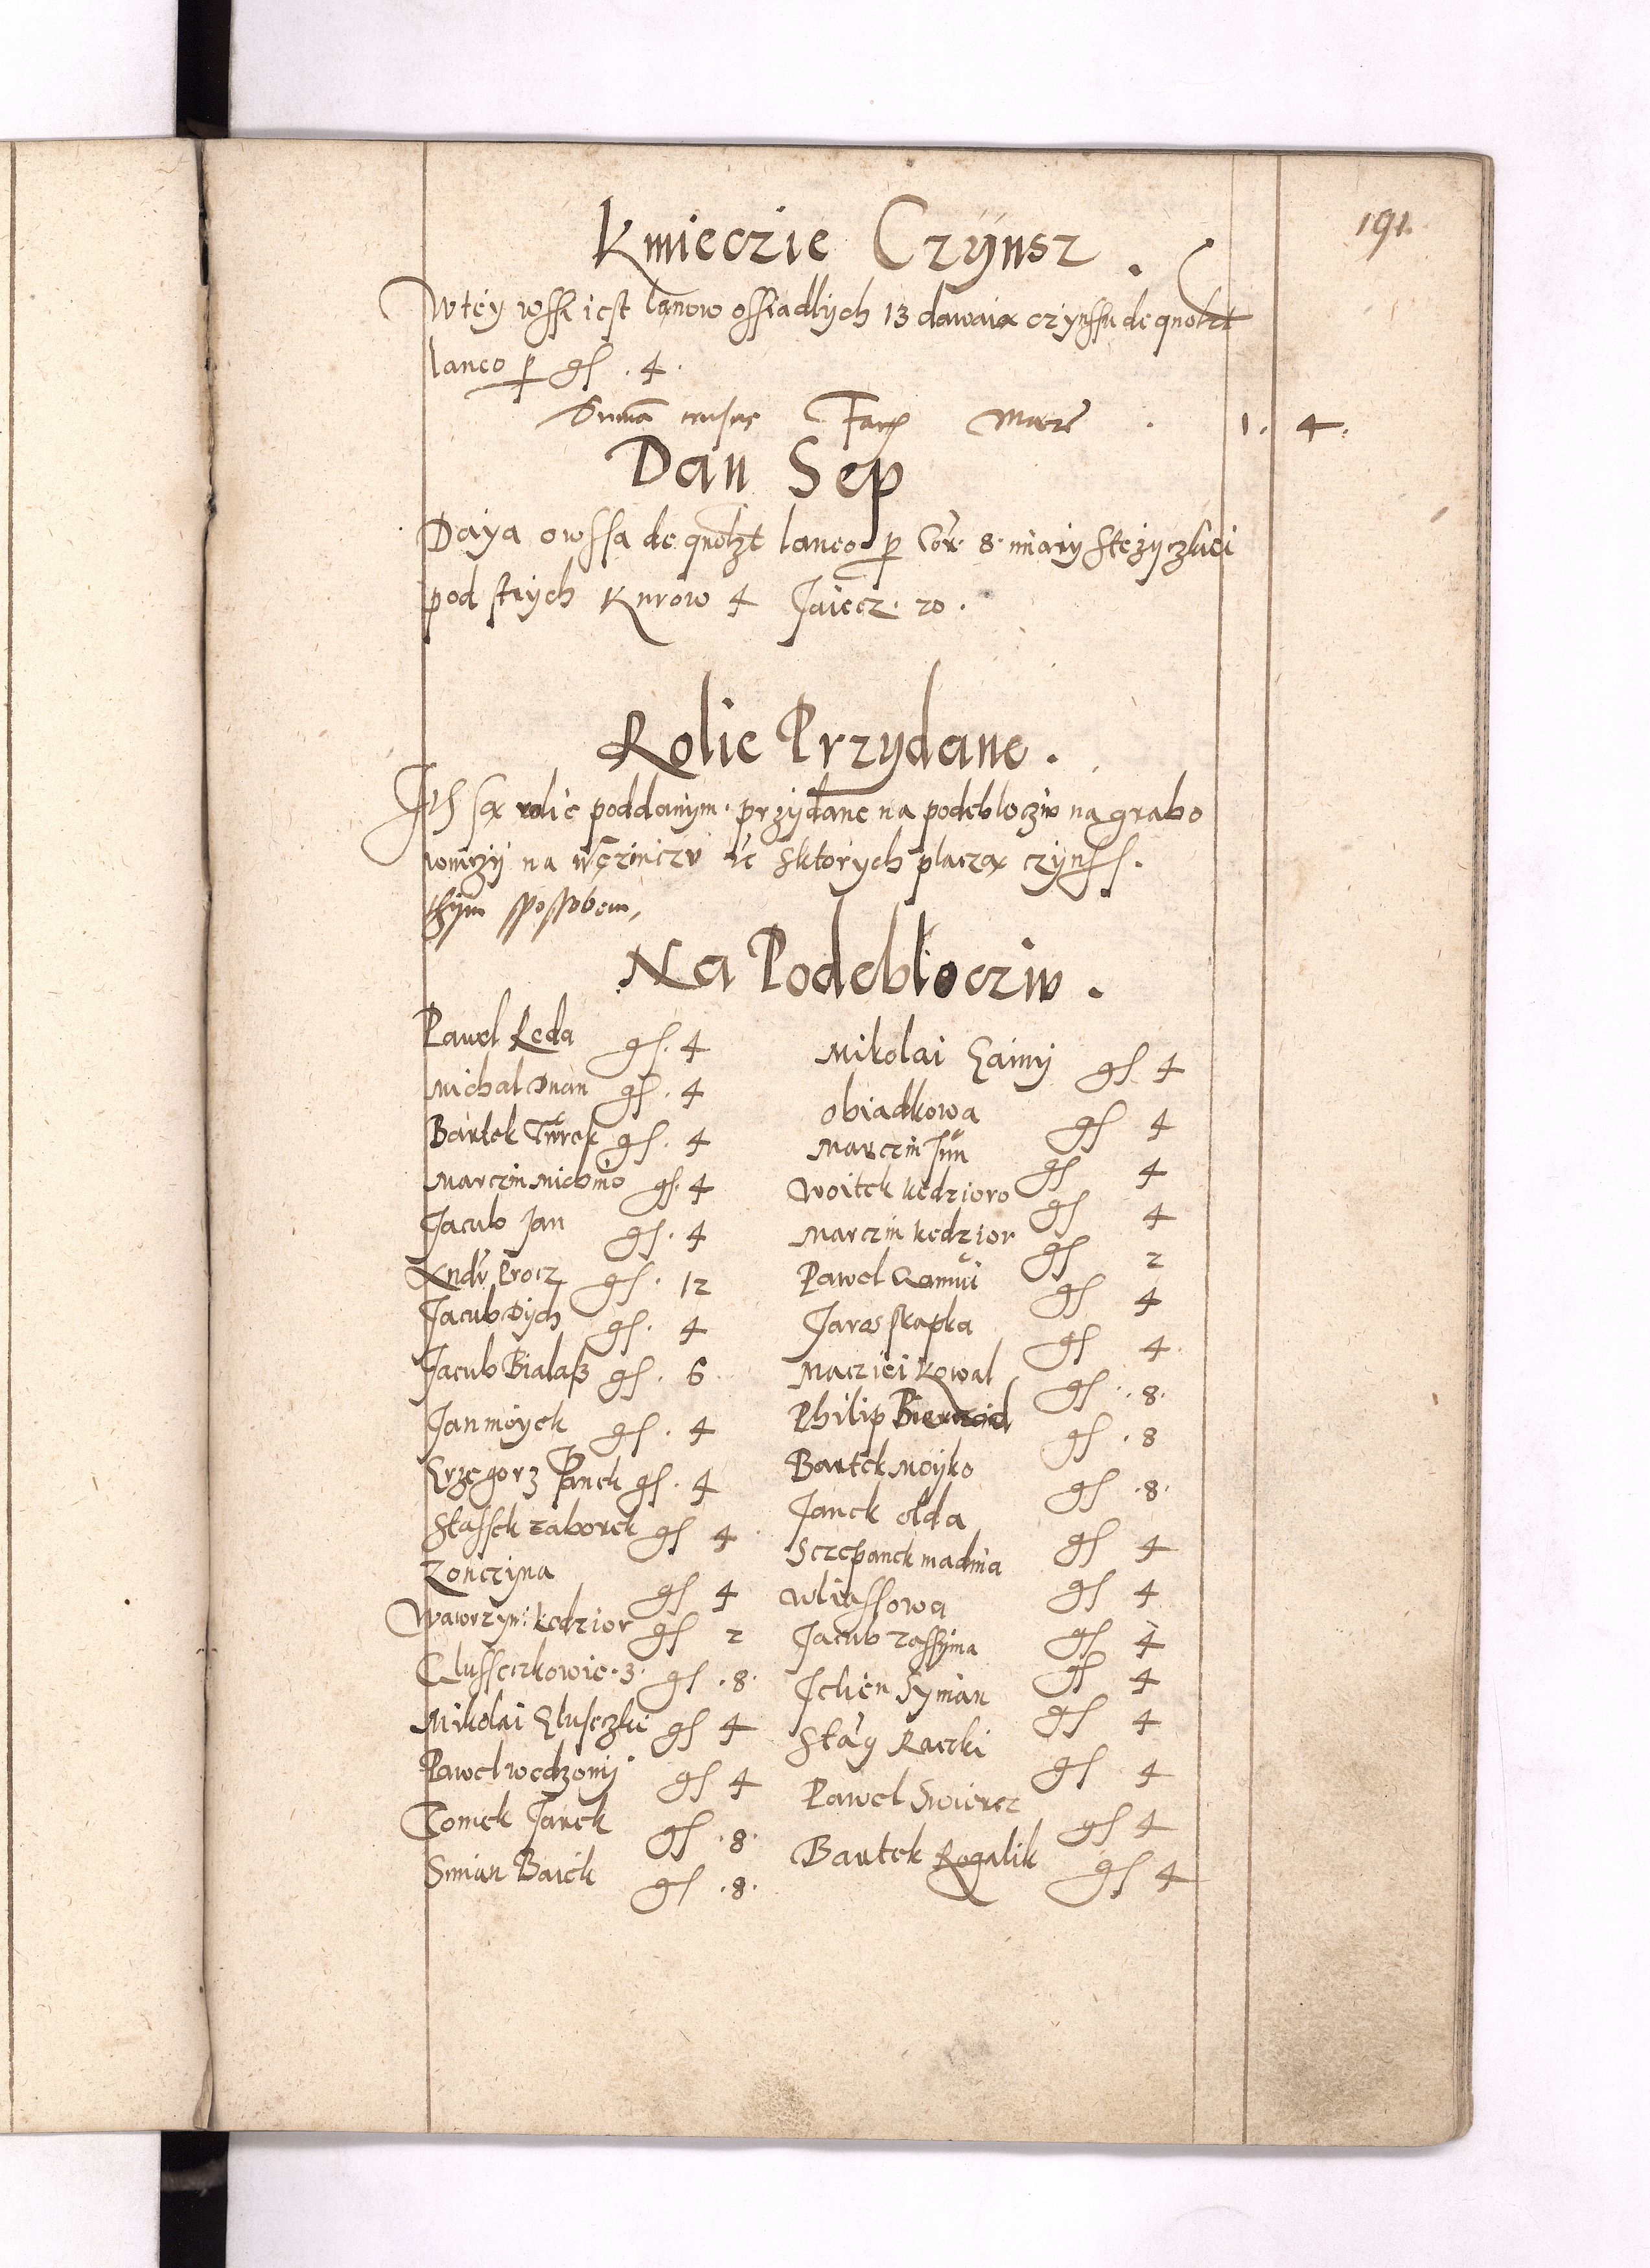 191.
Kmieczie Czÿnsz.
Wtey wssi iest lanow ossiadlych 13 dawaia czynssu de quolzt
laneo p gs. 4.
Suma Facit Marc. 1. 4.
Dan Sep
Daya owssa de quolzt laneo p Cor. 8. miary Stezyczkiei
pod strych Kurow 4 Jaiecz. 20.
Rolie Przydane.
Ith sa rolie poddanym przydane na podeblocziu na grabo
na Sktorych placza czynss.
thym spossobem,
Na Podebłocziu.
Pawel Reda gs. 4
Michal gs. 4
Bartek Turek gs. 4
Marczin Michno gs. 4
Jacub Jan gs. 4
Procz gs. 12
Jacub gs. 4
Jacub Bialass gs. 6
Jan moyek gs. 4
Grzegorz Panek gs. 4
Stassek zaborek gs 4
Zonczyna gs 4
Wawrzyn: kedzior gs 2
Glusseczkowie. 3. gs. 8.
Mikolai Gluseczki gs 4
Pawel wedzony gs 4
Tomek Janek gs. 8.
Siman Baiek gs. 8.
Mikolai gs 4
obiadkowa gs 4
Marczin gs 4
Woitek kedzioro gs 4
Marczin kedzior gs 2
Pawel gs 4
Jaros skapka gs 4.
Macziei Kowal gs. 8.
Philip gs. 8
Bartek Moyko gs. 8.
Janek olda gs 4
Sczepanek madnia gs 4
wliassowa gs 4
Jacub zassyma gs 4
Jelien Syman gs 4
Raczki gs 4
Pawel Swiercz gs 4
Bartek Rogalik gs 4